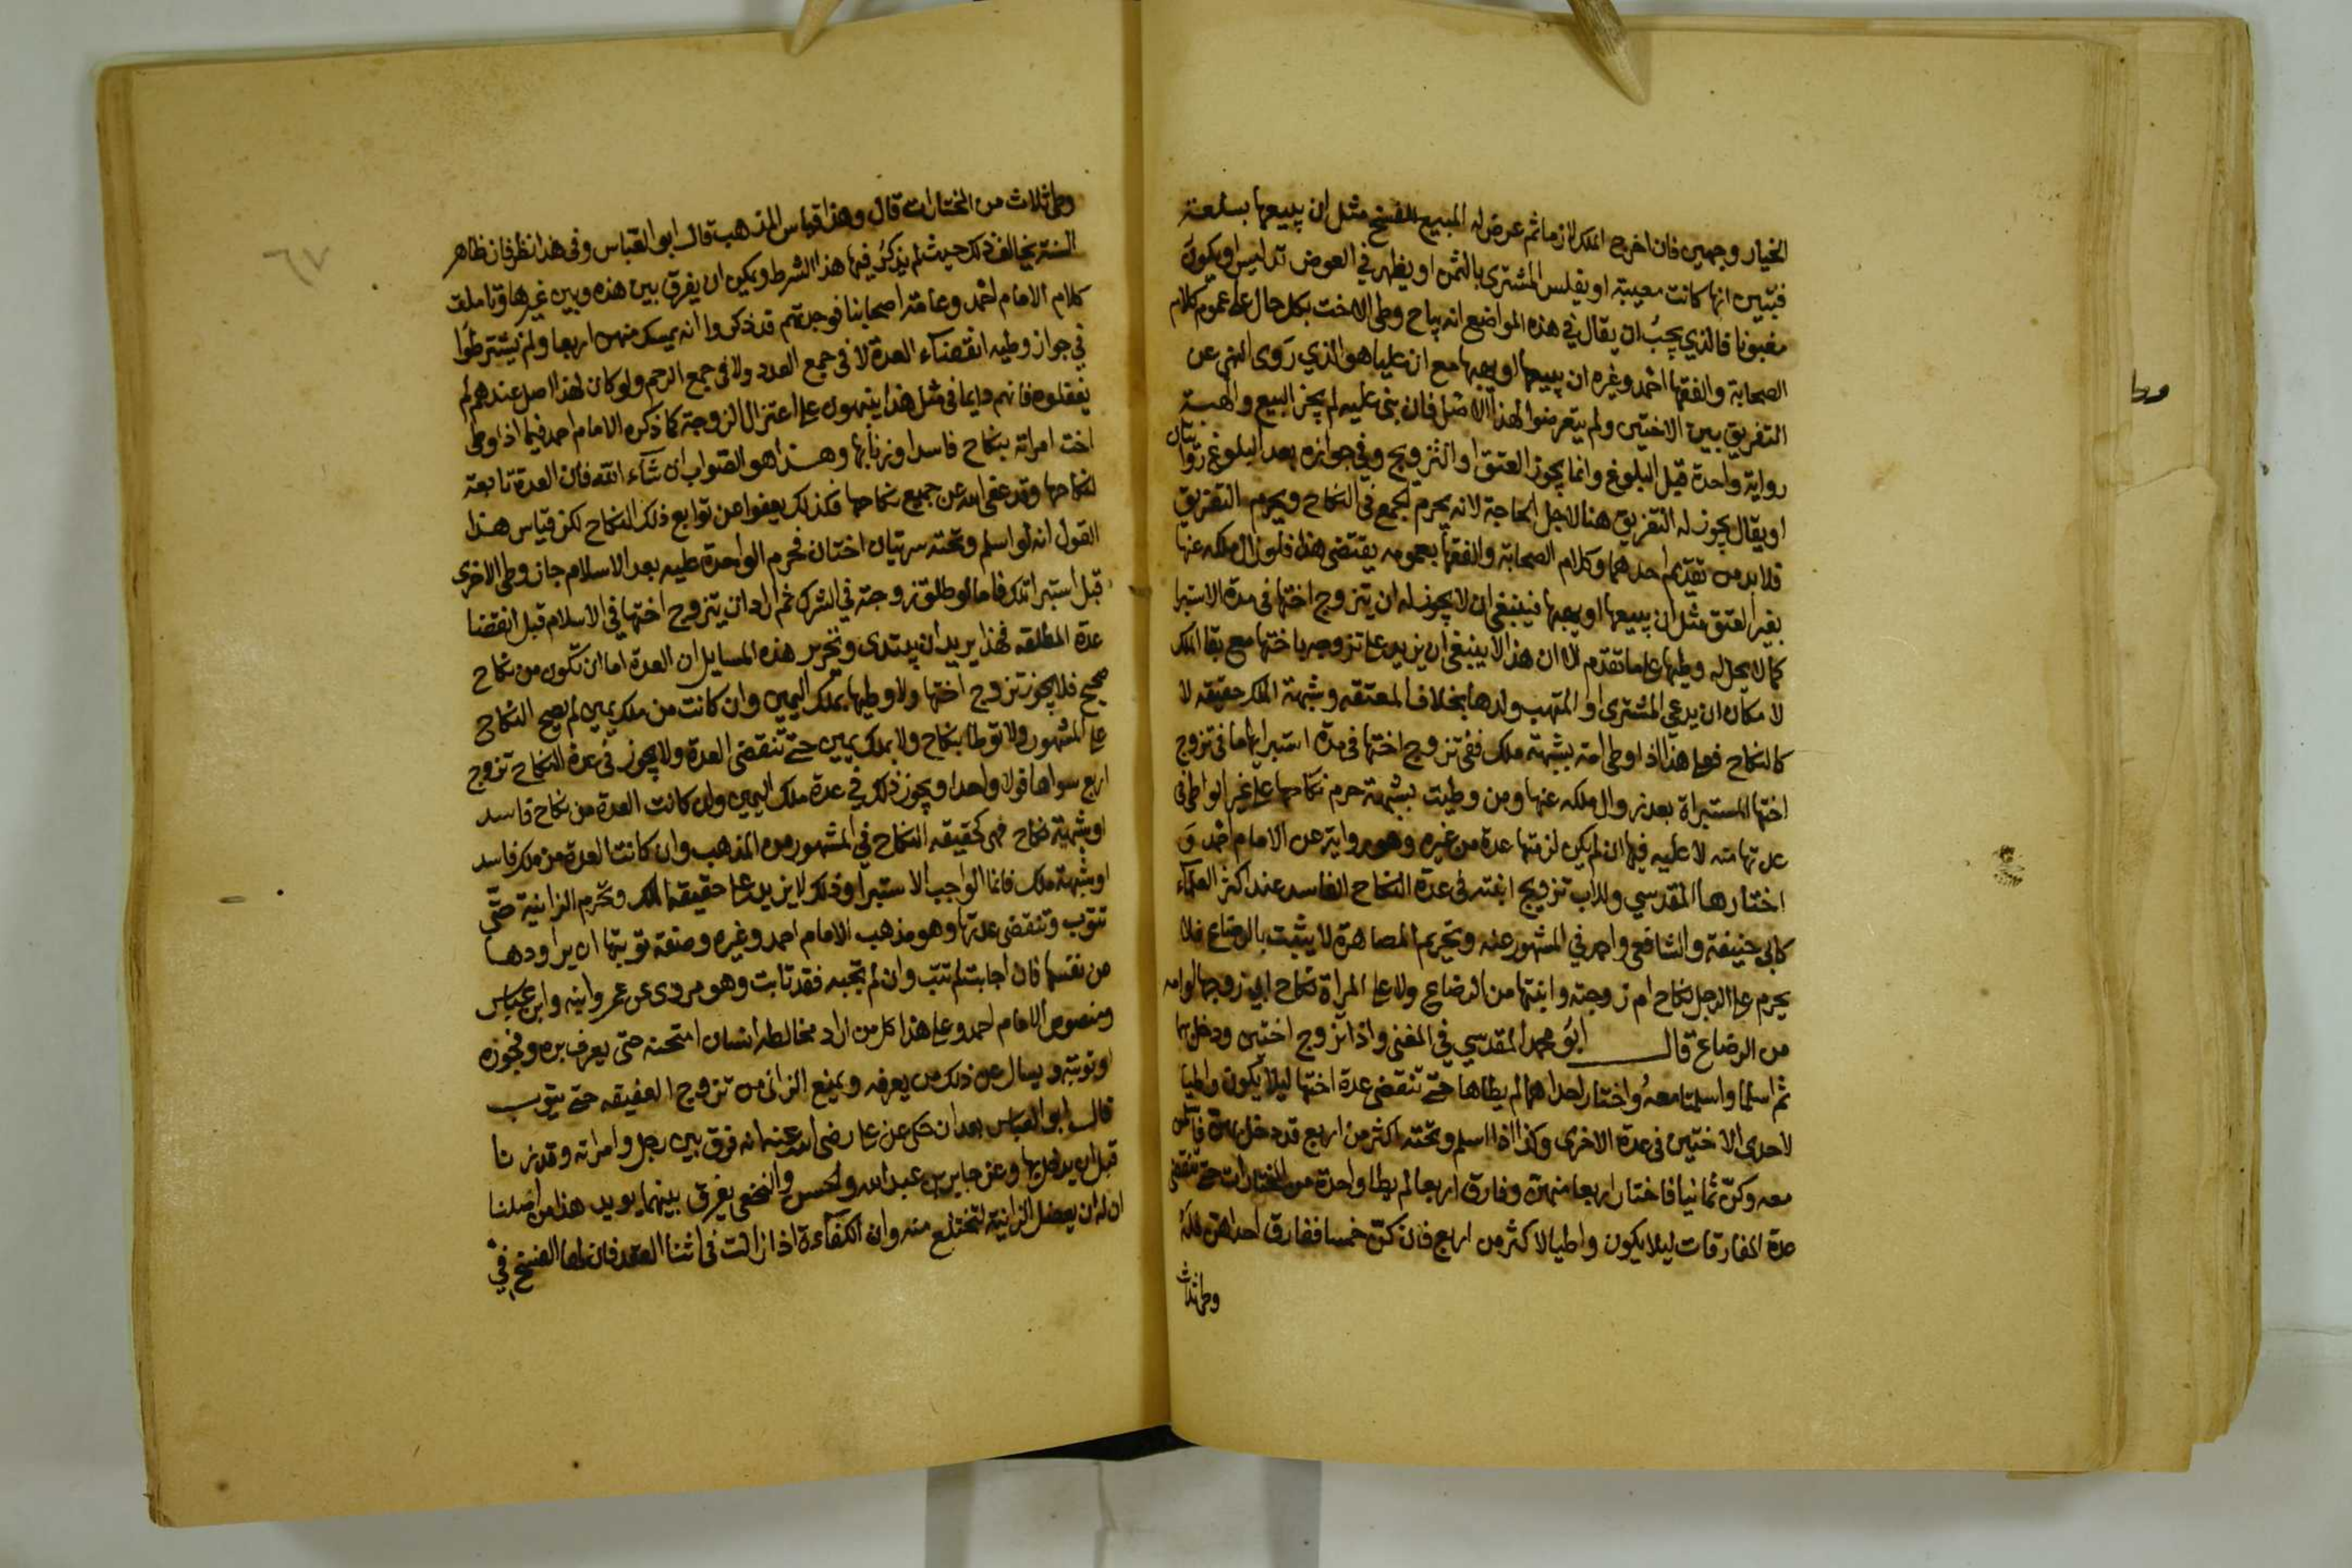 الخيار وجهين فان اخرج الملك لازما ثم عرض له المبيح للفسخ مثل ان يبيعها بسلعة
فتبين انها كانت معيبة او يفلس المشتري بالثمن او يظهر في العوض تدليس او يكون
مغبونا فالذي يجب ان يقال في هذه المواضع انه يباح وطى الاخت بكل حال على عموم كلام
الصحابة والفقها احمد وغيره ان يبيعها او يهبها مع ان عليا هو الذي روى النهي عن
التفريق بين الاختين ولم يتعرضوا لهذا الاصل فان بنى عليه لم يجز البيع والهبة
رواية واحدة قبل البلوغ وانما يجوز العتق او التزويج وفي جوازه بعد البلوغ روايتان
او يقال يجوز له التفريق هنا لاجل الحاجة لانه يحرم الجمع في النكاح ويحرم التفريق
فلا بد من تقديم احدهما وكلام الصحابة والفقها بعمومه يقتضى هذا فلو زال ملكه عنها
بغير العتق مثل ان يبيعها او يهبها فينبغي ان لا يجوز له ان يتزوج اختها في مدة الاستبرا
كما لا يحل له وطيها على ما تقدم الا ان هذا لا ينبغي ان يزيد على تزوجه باختها مع بقا الملك
لامكان ان يدعي المشتري او المتهب ولدها بخلاف المعتقه وشبهة الملك حقيقه لا
كالنكاح فعلى هذا اذا وطى امة بشبهة ملك ففي تزوج اختها في مدة استبرايها ما في تزوج
اختها المستبراة بعد زوال ملكه عنها ومن وطيت بشبهة حرم نكاحها على غير الواطي في
عدتها منه لا عليه فيها ان لم يكن لزمتها عدة من غيره وهو رواية عن الامام احمد و
اختارها المقدسي وللاب تزويج ابنته في عدة النكاح الفاسد عند اكثر العلماء
كابي حنيفة والشافعي واحمد في المشهور عنه وتحريم المصاهرة لا يثبت بالرضاع فلا
يحرم على الرجل نكاح ام زوجته وابنتها من الرضاع ولا على المراة نكاح ابي زوجها او ابنه
من الرضاع قال ابو محمد المقدسي في المغني واذا تزوج اختين ودخل بهما
ثم اسلم واسلمتا معه واختار احداهما لم يطاها حتى تنقضى عدة اختها ليلا يكون واطيا
لاحدى الاختين في عدة الاخرى وكذا اذا اسلم وتحته اكثر من اربع قد دخل بهن فاسلمن
معه وكن ثمانيا فاختار اربعا منهن وفارق اربعا لم يطا واحدة من المختارات حتى تنقضى
عدة المفارقات ليلا يكون واطيا لاكثر من اربع فان كن خمسا ففارق احداهن فله
وطى ثلاث
وطى ثلاث من المختارات قال وهذا قياس المذهب قال ابو العباس وفي هذا نظر فان ظاهر
السنة يخالف ذلك حيث لم يذكر فيها هذا الشرط ويمكن ان يفرق بين هذه وبين غيرها وتاملت
كلام الامام احمد وعامة اصحابنا فوجدتهم قد ذكروا انه يمسك منهن اربعا ولم يشترطوا
في جواز وطيه انقضاء العدة لا في جمع العدد ولا في جمع الرحم ولو كان لهذا اصل عندهم لم
يغفلوه فانهم دايما في مثل هذا ينبهون على اعتزال الزوجة كما ذكره الامام احمد فيما اذا وطى
اخت امراته بنكاح فاسد او زنا بها وهذا هو الصواب ان شاء الله فان العدة تابعة
لنكاحها وقد عفى الله عن جميع نكاحها فكذلك يعفوا عن توابع ذلك النكاح لكن قياس هذا
القول انه لو اسلم وتحته سريتان اختان فحرم الواحدة عليه بعد الاسلام جاز وطى الاخرى
قبل استبرا تلك فاما لو طلق زوجته في الشرك ثم اراد ان يتزوج اختها في الاسلام قبل انقضا
عدة المطلقه فهذا يريد ان يبتدى وتحرير هذه المسايل ان العدة اما ان تكون من نكاح
صحيح فلا يجوز تزوج اختها ولا وطيها بملك اليمين وان كانت من ملك يمين لم يصح النكاح
على المشهور ولا توطا بنكاح ولا بملك يمين حتى تنقضى العدة ولا يجوز في عدة النكاح تزوج
اربع سواها قولا واحدا ويجوز ذلك في عدة ملك اليمين وان كانت العدة من نكاح فاسد
او شبهة نكاح فهى كحقيقه النكاح في المشهور من المذهب وان كانت العدة من ملك فاسد
او شبهة ملك فانما الواجب الاستبرا وذلك لا يزيد على حقيقة الملك وتحرم الزانية حتى
تتوب وتنقضى عدتها وهو مذهب الامام احمد وغيره وصفة توبتها ان يراودها
من نفسها فان اجابت لم تتب وان لم تجبه فقد تابت وهو مروى عن عمر وابنه وابن عباس
ومنصوص الامام احمد وعلى هذا كل من اراد مخالطه انسان امتحنه حتى يعرف بره وفجوره
او توبته ويسال عن ذلك من يعرفه ويمنع الزاني من تزوج العفيفه حتى يتوب
قال ابو العباس بعد ان حكى عن على رضى الله عنه انه فرق بين رجل وامراته وقد زنا
قبل ان يدخل بها وعن جابر بن عبد الله والحسن والنخعى يفرق بينهما يويد هذا من اصلنا
ان له ان يعضل الزانية لتختلع منه وان الكفاءة اذا زالت في اثنا العقد فان لها الفسخ في
٦٧